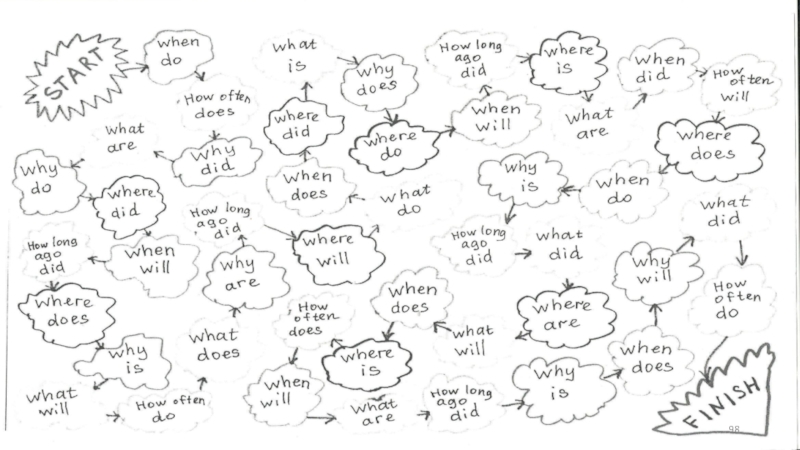 START
when
do
How often
does
why
did
what
are
why
do
where
did
when
will
How long
ago
did
where
does
why
is
what
will
How often
do
what
does
why
are
How long
ago
did
where
will
what
do
when
does
where
did
what
is
why
does
where
do
when
will
How long
ago
did
where
is
what
are
when
did
How
often
will
where
does
when
do
why
is
How long
ago
did
what
did
where
are
what
will
when
does
where
is
How
often
does
when
will
what
are
How long
ago
did
why
is
when
does
why
will
what
did
How
often
do
FINISH
98